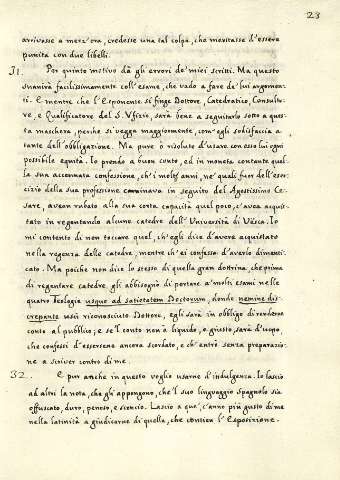 23
arrivasse a mezz'ora, credesse una tal colpa, che meritasse d'essere
punita con due libelli.
31. Per quinto motivo dà gli errori de' miei scritti. Ma questo
svanirà facilissimamente coll'esame, che vado a fare de' lui argomen-
ti. E mentre che l'Esponente si finge Dottore, Catedratico, Consulto-
re, e Qualificatore del S. Vfizio, sarà bene a seguitarlo sotto a ques-
ta maschera, perche si vegga maggiormente, com'egli sodisfaccia a
tante dell'obligazione. Ma pure ò risoluto d'usare con esso lui ogni
possibile equità. Io prendo a buon conto, ed in moneta contante quel-
la sua accennata confessione, ch'i molti anni, ne' quali fuor dell'eser-
cizio della sua professione caminava in seguito del Agostissimo Ce-
sare, avean rubato alla sua corta capacità quel poco, c'avea aquis-
tato in regentando alcune catedre dell'Università di Vèsca. Io
mi contento di non toccare quel, ch'egli dice d'avere aquistato
nella regenza delle catedre, mentre ch'ei confessa d'averlo dimenti-
cato. Ma poiche non dice lo stesso di quella gran dottrina, che prima
di regentare catedre, gli abbisognò di portare a' molti esami nelle
quatro Teologie usque ad Satietatem Doctorum, donde nemine dis-
crepante uscì riconosciuto Dottore, egli sarà in obligo di renderne
conto al publico; e se 'l conto non è liquido, e giusto, sarà d'uopo,
che confessi d'essersene ancora scordato, e ch'entrò senza preparazio-
ne a scriver contro di me.
32. E pur anche in questo voglio usarne d'indulgenza. Io lascio
ad altri la nota, che gli appongono, che 'l suo linguaggio spagnolo sia
offuscato, duro, penoso, e sciencio. Lascio a que', c'anno più gusto di me
nella latinità a giudicarne di quella, che contien l'Esposizione.